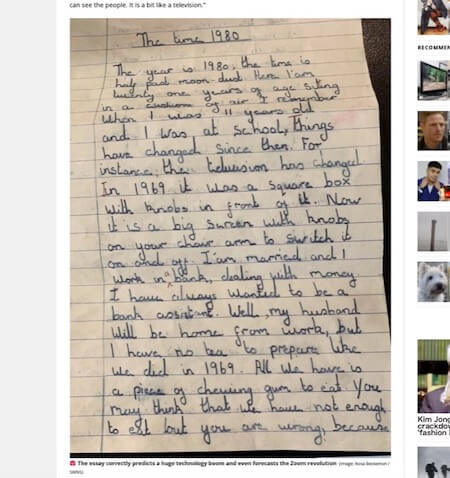 can see the people. It is a bit like a television."
The time 1980
The year is 1980, the time is
half past moon-dust. Here I'am
twenty one years of age siting
in a cushion of air I remember
When I was 11 years old
and I was at School, things
have changed since then. For
instance, the television has changed.
In 1969 it was a square box
with knobs in front of it. Now
it is a big screen with knobs
on your chair arm to switch it
on and off. I'am married and I
work in a bank, dealing with money
I have always wanted to be a
bank assistant. Well, my husband
will be home from work, but
I have no tea to prepare like
we did in 1969. All we have is
a piece of chewing gum to eat. You
may think that we have not enough
to eat but you are wrong, because
The essay correctly predicts a huge technology boom and even forecasts the Zoom revolution (Image:
SWNS)
RECOMMEN
Kim Jong
crackdow
'fashion